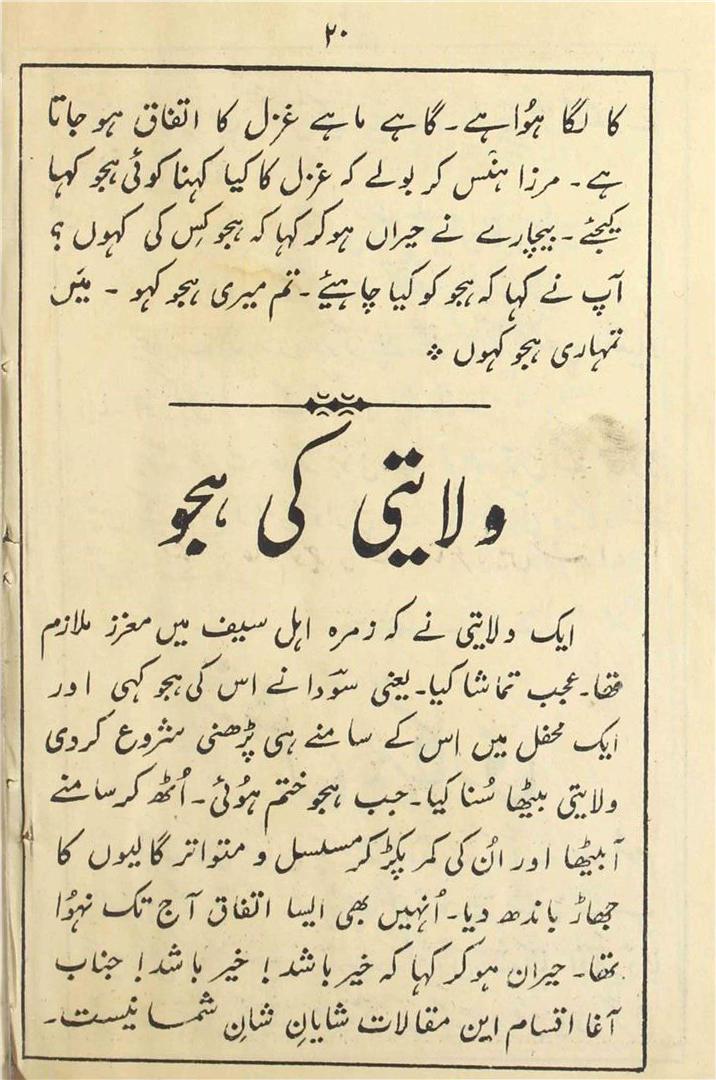 ۲۰
کا لگا ہوُا ہے۔ گاہے ماہے غزل کا اتفاق ہو جاتا
ہے۔ مرزا ہنس کر بولے کہ غزل کا کیا کہنا کوئی ہجو کہا
کیجئے۔ بیچارے نے حیراں ہوکر کہا کہ ہجو کِس کی کہوں؟
آپ نے کہا کہ ہجو کو کیا چاہیئے۔ تم میری ہجو کہو ۔ میَں
تمہاری ہجو کہوں
ولایتی کی ہجو
ایک ولایتی نے کہ زمرہ اہل سیف میں معزز ملازم
تھا۔ عجب تماشا کیا۔ یعنی سوؔدا نے اس کی ہجو کہی اور
ایک محفل میں اس کے سامنے ہی پڑھنی شروع کردی
ولایتی بیٹھا سُنا کیا۔ جب ہجو ختم ہوُئی۔ اُٹھ کر سامنے
آ بیٹھا اور اُن کی کمر پکڑ کر مسلسل و متواتر گالیوں کا
جھاڑ باندھ دیا۔ اُنہیں بھی ایسا اتفاق آج تک نہوُا
تھا۔ حیران ہوکر کہا کہ خیر باشد! خیر باشد! جناب
آغا اقسام این مقالات شایانِ شانِ شما نیست۔